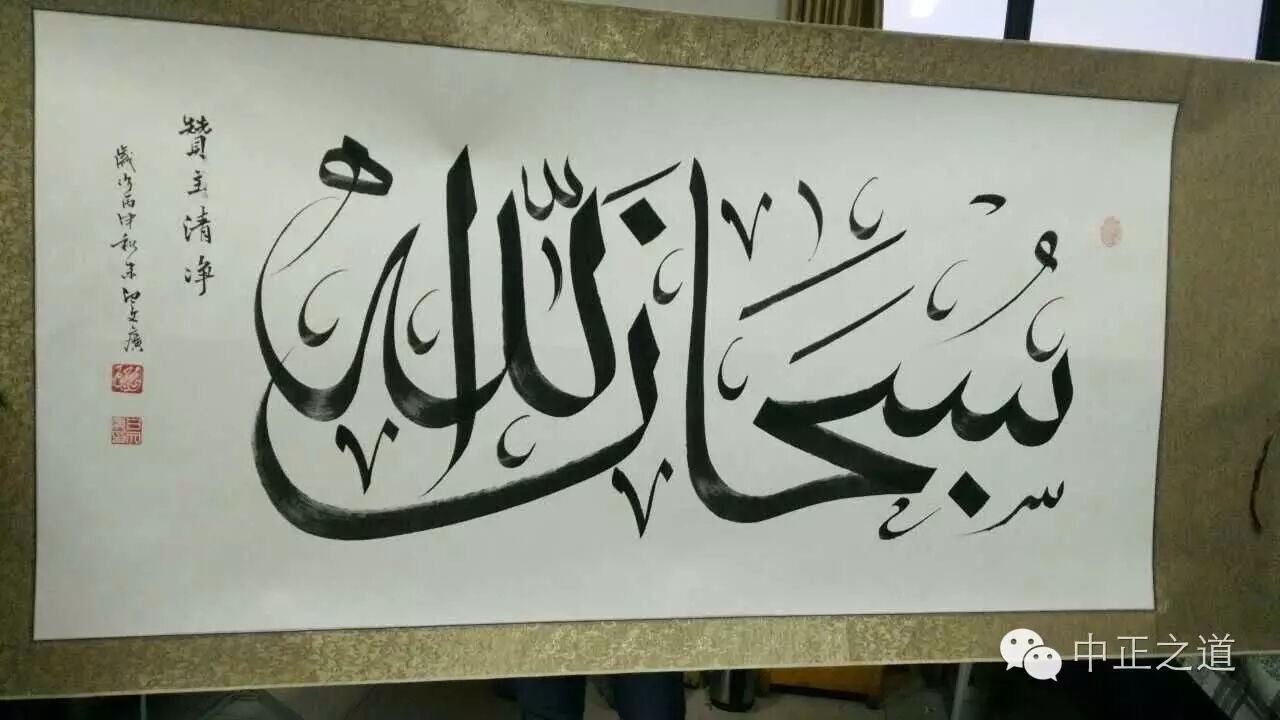 سُبْحَانَ اللّٰهِ
贊主清净
歲次丙申秋末
中正之道